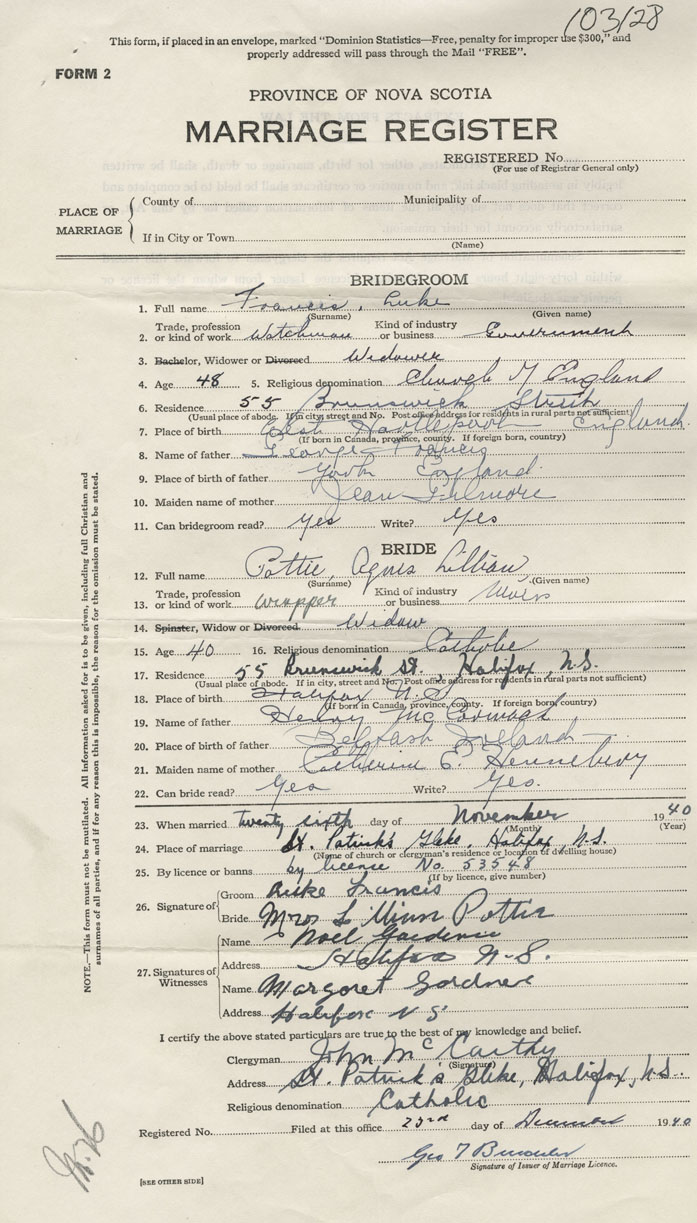 103128
This form, if placed in an envelope, marked "Dominion Statistics—Free, penalty for improper use $300," and
properly addressed will pass through the Mail "FREE".
FORM 2
PROVINCE OF NOVA SCOTIA
MARRIAGE REGISTER
REGISTERED No.
(For use of Registrar General only)
PLACE OF MARRIAGE
County of Municipality of
If in City or Town
(Name)
BRIDEGROOM
1. Full name Francis, Luke
(Surname) (Given name)
2. Trade, profession or kind of work Watchman Kind of industry or business Government
3. Bachelor, Widower or Divorced Widower
4. Age 48 5. Religious denomination Church of England
6. Residence 55 Brunswick Street
(Usual place of abode. If in city, street and No. Post office address for residents in rural parts not sufficient)
7. Place of birth West Hartlepool England
(If born in Canada, province, county. If foreign born, country)
8. Name of father George Francis
9. Place of birth of father York England
10. Maiden name of mother Jean
11. Can bridegroom read? Yes Write? Yes
BRIDE
12. Full name Pottie, Agnes Lillian
(Surname) (Given name)
13. Trade, profession or kind of work Wrapper Kind of industry or business
14. Spinster, Widow or Divorced Widow
15. Age 40 16. Religious denomination Catholic
17. Residence 55 Brunswick St., Halifax, N.S.
(Usual place of abode. If in city, street and No. Post office address for residents in rural parts not sufficient)
18. Place of birth Halifax N.S
(If born in Canada, province, county. If foreign born, country)
19. Name of father Henry McCormack
20. Place of birth of father Belfast Ireland
21. Maiden name of mother Catherine E. Hennebery
22. Can bride read? Yes Write? Yes.
23. When married twenty sixth day of November 1940
(Month) (Year)
24. Place of marriage St. Patrick's Glebe, Halifax, N.S.
(Name of church or clergyman's residence or location of dwelling house)
25. By licence or banns by licence No. 53548
(If by licence, give number)
26. Signature of
Groom Luke Francis
Bride Mrs Lillian Pottie
27. Signatures of Witnesses
Name Noel Gardener
Address Halifax N.S.
Name Margaret Gardner
Address Halifax N S
I certify the above stated particulars are true to the best of my knowledge and belief.
Clergyman John McCarthy
(Signature)
Address St. Patrick's Glebe, Halifax, N.S.
Religious denomination Catholic
Registered No. Filed at this office 23rd day of December 1940
Geo T
Signature of Issuer of Marriage Licence.
[SEE OTHER SIDE]
NOTE.—This form must not be mutilated. All information asked for is to be given, including full Christian and
surnames of all parties, and if for any reason this is impossible, the reason for the omission must be stated.